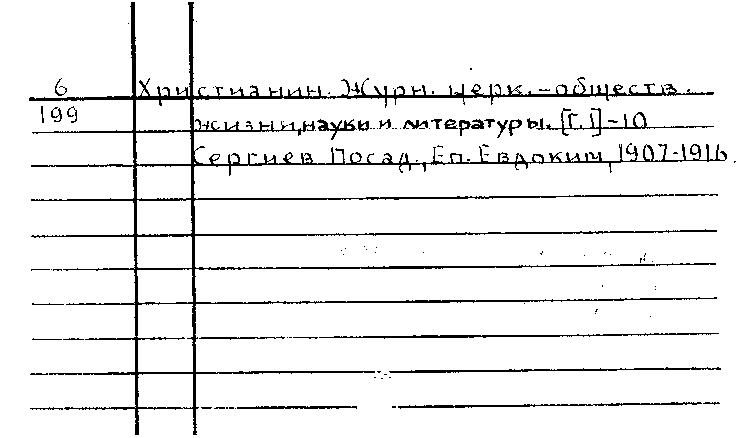 6
199
Христианин. Журн. церк.-обществ.
жизни, науки и литературы. [Г.1]-10
Сергиев Посад, Еп. Евдоким, 1907-1916.